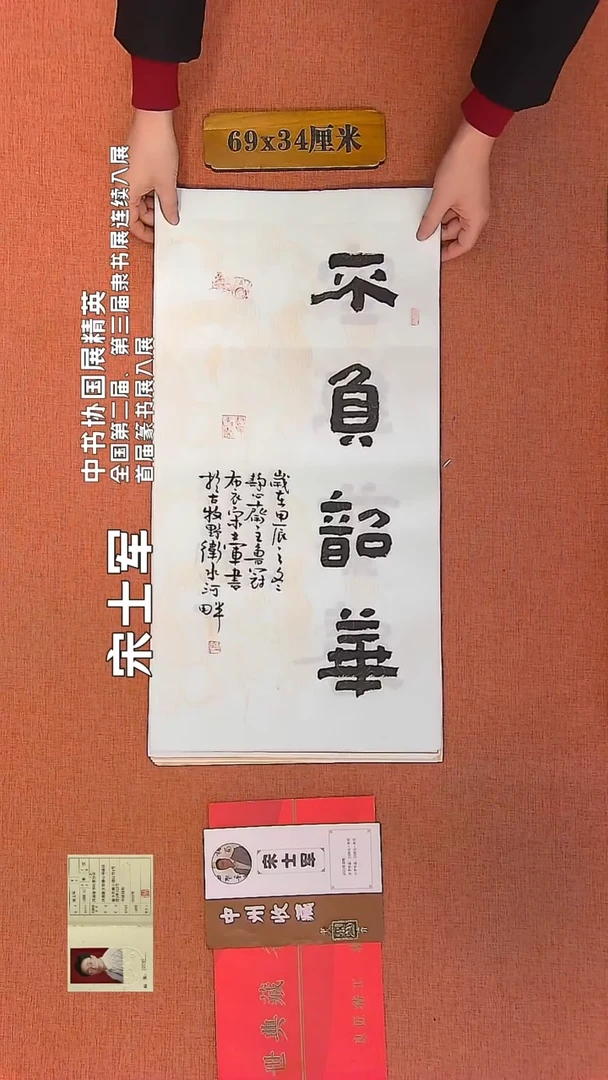 69x34厘米
不負韶華
歲在甲辰之冬
靜心齋主魯冠
布衣宋士軍書
於古牧野衛水河畔
中书协国展精英
全国第二届、第三届隶书展连续入展
首届篆书展入展
宋士军
宋士军
中州收藏
世典藏